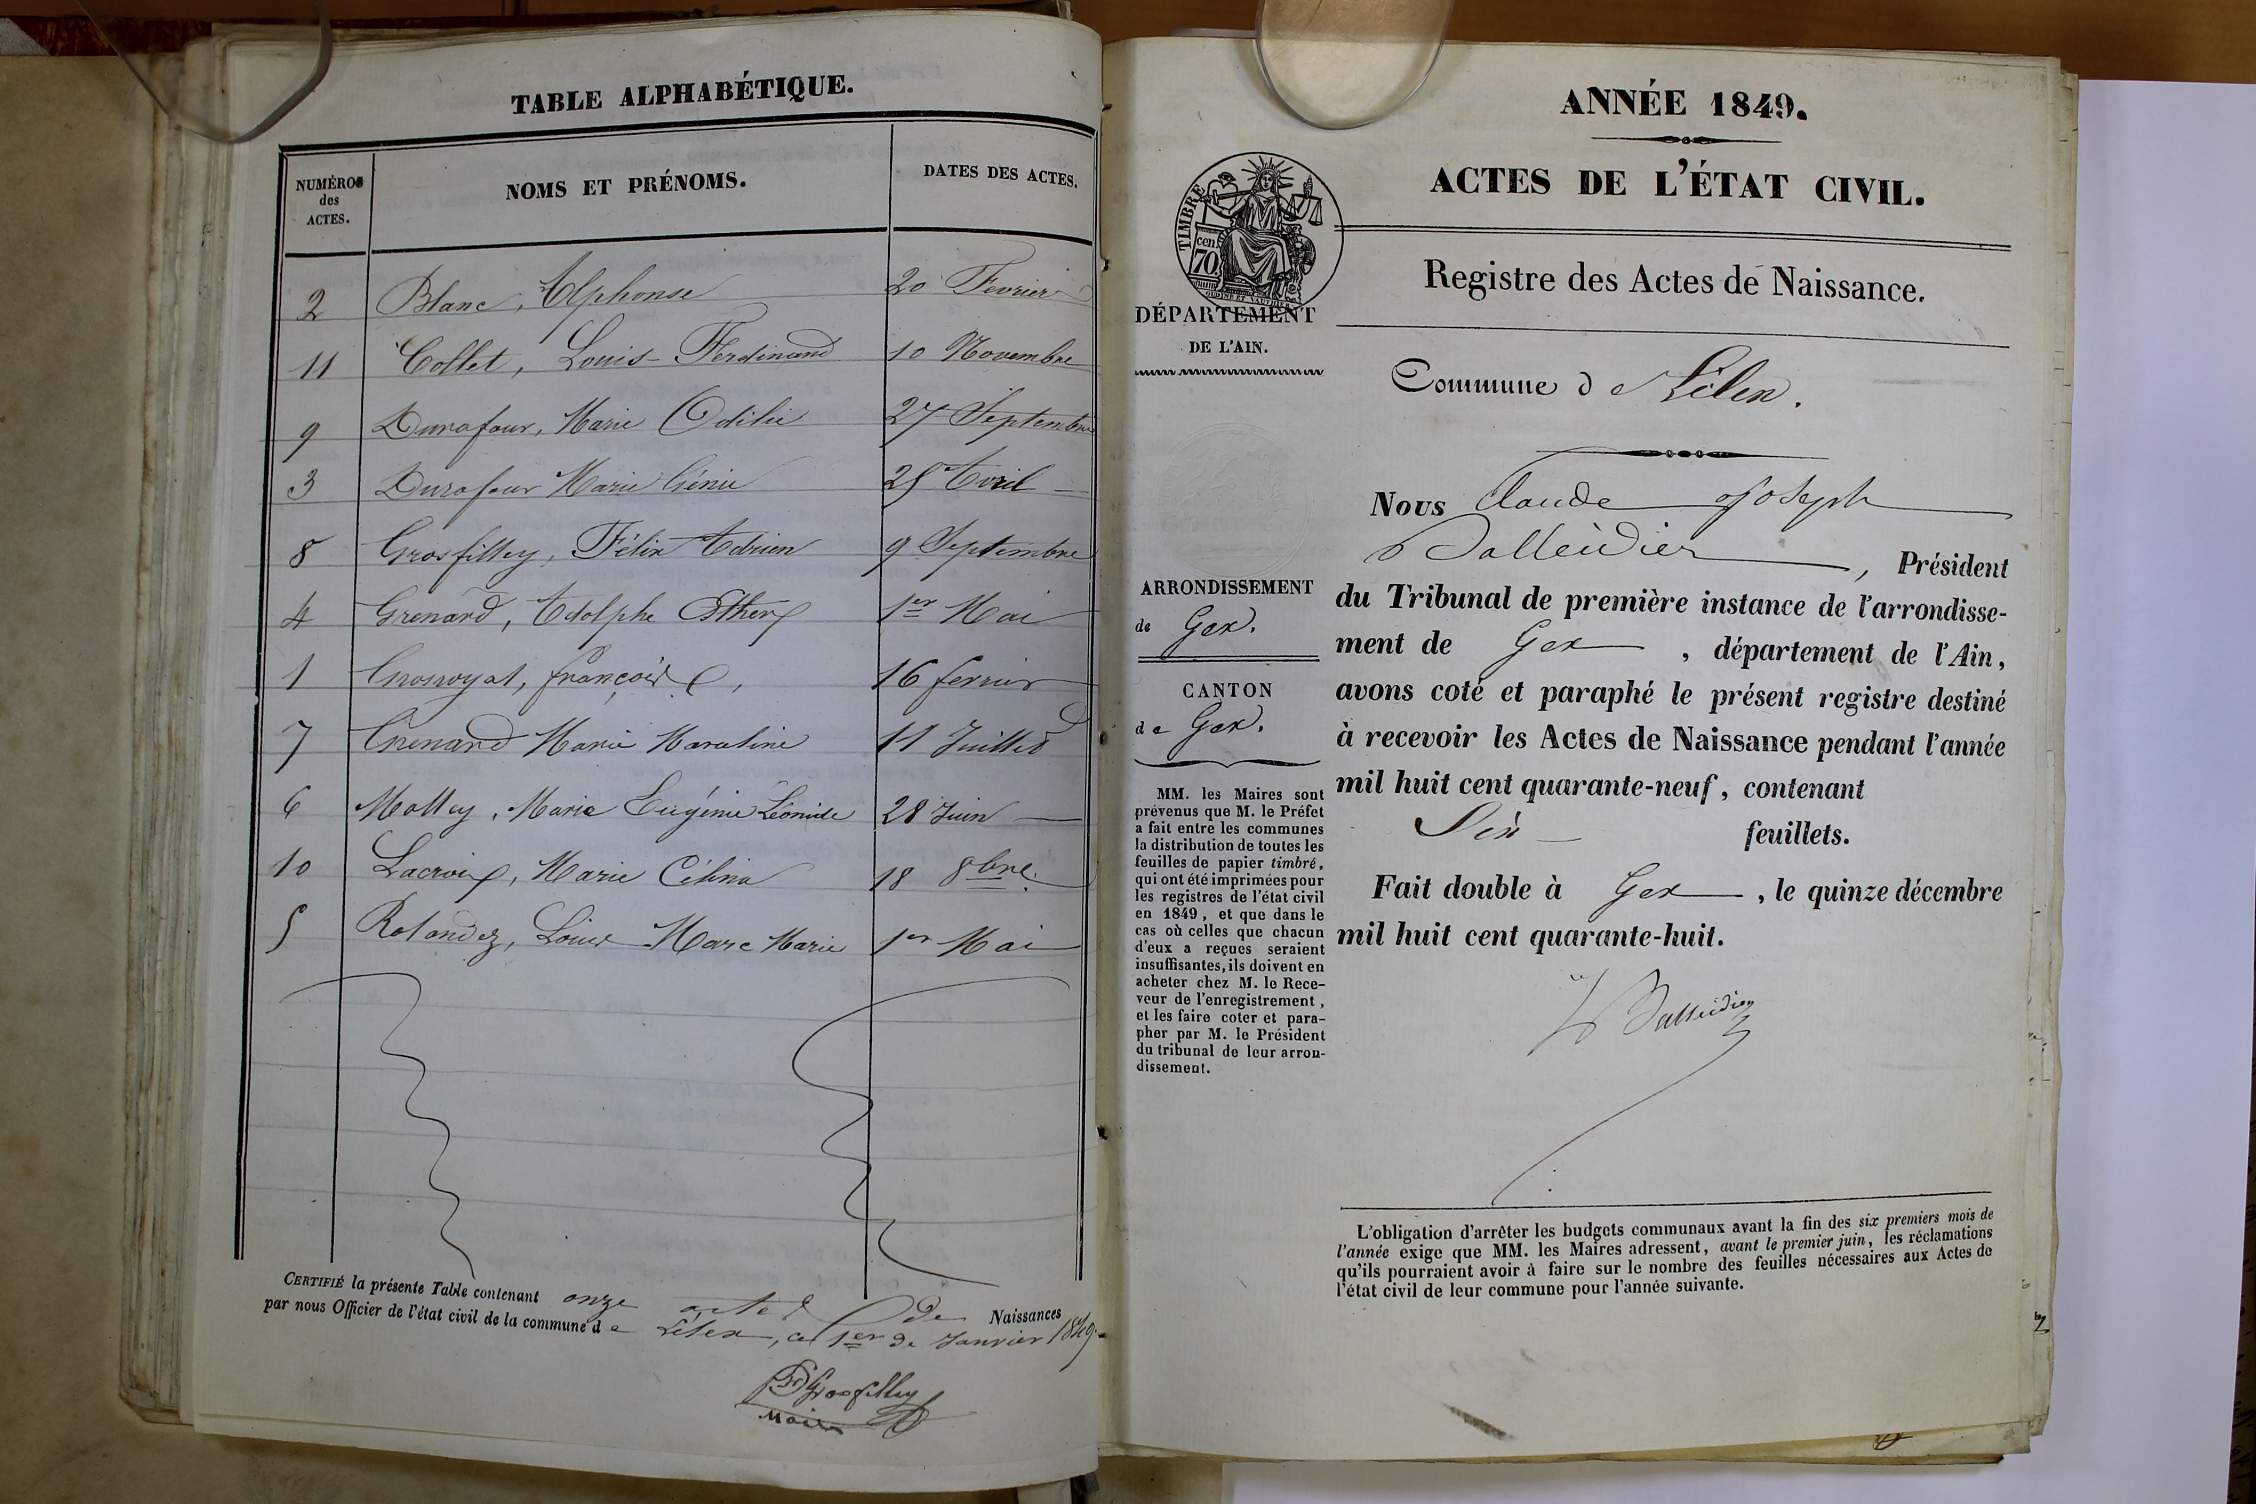 TABLE ALPHABÉTIQUE.
NUMÉROS des ACTES. NOMS ET PRÉNOMS. DATES DES ACTES.
2 Blanc, Alphonse 20 Fevrier
11 Collet, Louis-Ferdinand 10 Novembre
9 Durafour, Marie Odilie 27 Septembre
3 Durafour Marie Génie 25 Avril
8 Grosfilley, Félix Adrien 9 Septembre
4 Grenard, Adolphe Esther 1er Mai
1 Grosroyat, françois 16 ferrier
7 Grenard Marie 11 Juillet
6 Marie Eugénie Léonide 28 Juin
10 Lacroix, Marie Célina 18 8bre
5 Rolandez, Louis Marc Marie 1er Mai
CERTIFIÉ la présente Table contenant onze actes de Naissances
par nous Officier de l'état civil de la commune de Lélex, ce 1er de Janvier 1849.
Grosfilley
Maire
ANNÉE 1849.
ACTES DE L'ÉTAT CIVIL.
Registre des Actes de Naissance.
TIMBRE
cen
70
DÉPARTEMENT
DE L'AIN.
Commune de Lélex.
ARRONDISSEMENT
de Gex.
CANTON
de Gex.
MM. les Maires sont
prévenus que M. le Préfet
a fait entre les communes
la distribution de toutes les
feuilles de papier timbré,
qui ont été imprimées pour
les registres de l'état civil
en 1849, et que dans le
cas où celles que chacun
d'eux a reçues seraient
insuffisantes, ils doivent en
acheter chez M. le Rece-
veur de l'enregistrement,
et les faire coter et para-
pher par M. le Président
du tribunal de leur arron-
dissement.
Nous Claude Joseph
Balleidier, Président
du Tribunal de première instance de l'arrondisse-
ment de Gex, département de l'Ain,
avons coté et paraphé le présent registre destiné
à recevoir les Actes de Naissance pendant l'année
mil huit cent quarante-neuf, contenant
Six feuillets.
Fait double à Gex, le quinze décembre
mil huit cent quarante-huit.
Balleidier
L'obligation d'arrêter les budgets communaux avant la fin des six premiers mois de
l'année exige que MM. les Maires adressent, avant le premier juin, les réclamations
qu'ils pourraient avoir à faire sur le nombre des feuilles nécessaires aux Actes de
l'état civil de leur commune pour l'année suivante.